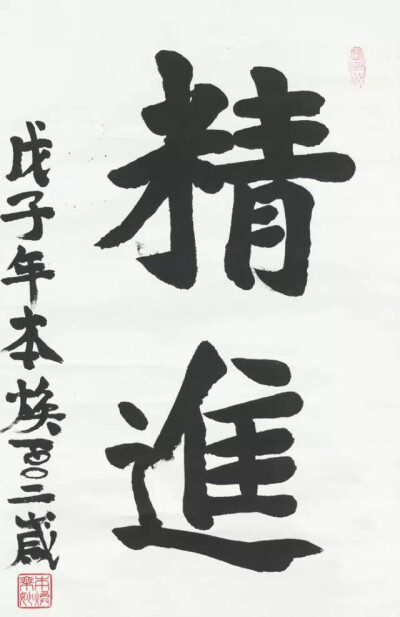 精進
戊子年本焕百〇二歲